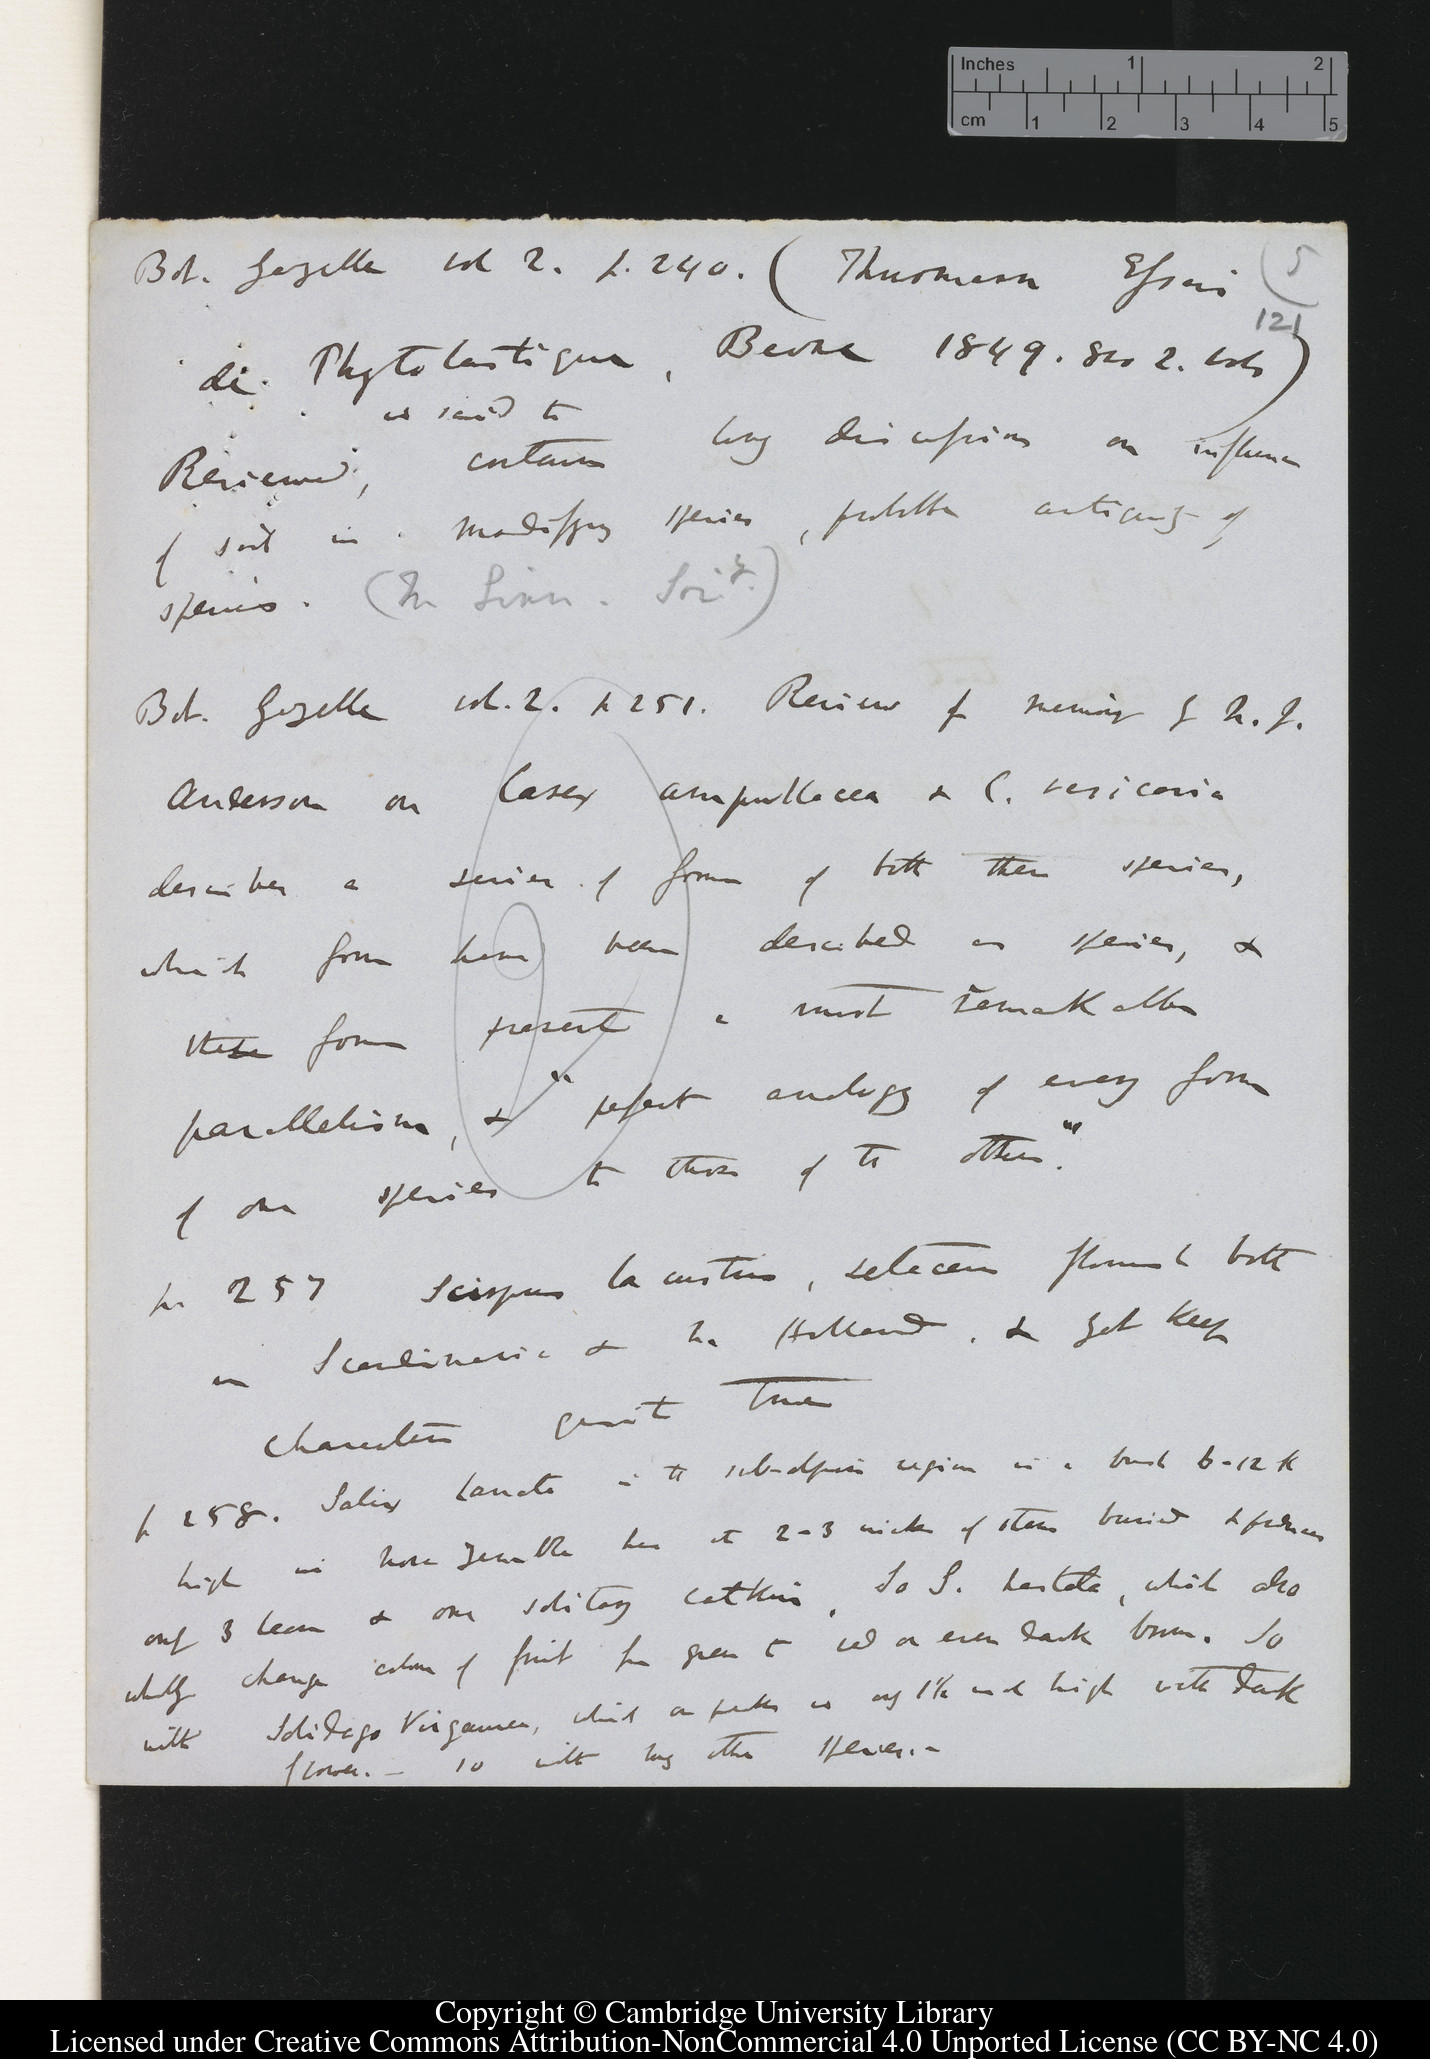 Inches 1 2
cm 1 2 3 4 5
Bot. Gazette vol 2. p. 240. (Thurmann Essai
(5
121
de Phytostatique, Berne 1849. 8vo 2. vols)
is said to
Reviewed, contain long discussions on influence
of soil in modifying species, probable antiquity of
species. (In Linn. Soc.y.)
Bot. Gazette vol. 2. p 251. Review of memoir by N. J.
Anderson on Carex ampullacea & C. vesicaria
describes a series of forms of both these species,
which forms have been described as species, &
these forms present a most remarkable
parallelism, & "perfect analogy of every form
of one species to those of the other."
p. 257 Scirpus lacustris, setaceus flourish both
in Scandinavia & N. Holland, & yet keep
characters quite true
p 258. Salix lanata in the sub-alpine region is a bush 6-12 ft
high in Nova Zembla has at 2-3 inches of stem buried & produces
only 3 leaves & one solitary catkin, So S. hastata, which also
wholly changes colour of fruit from green to red or even dark brown. So
with Solidago Virgaurea, which on is only 1½ inch high with dark
flowers. — so with many other species. —
Copyright © Cambridge University Library
Licensed under Creative Commons Attribution-NonCommercial 4.0 Unported License (CC BY-NC 4.0)